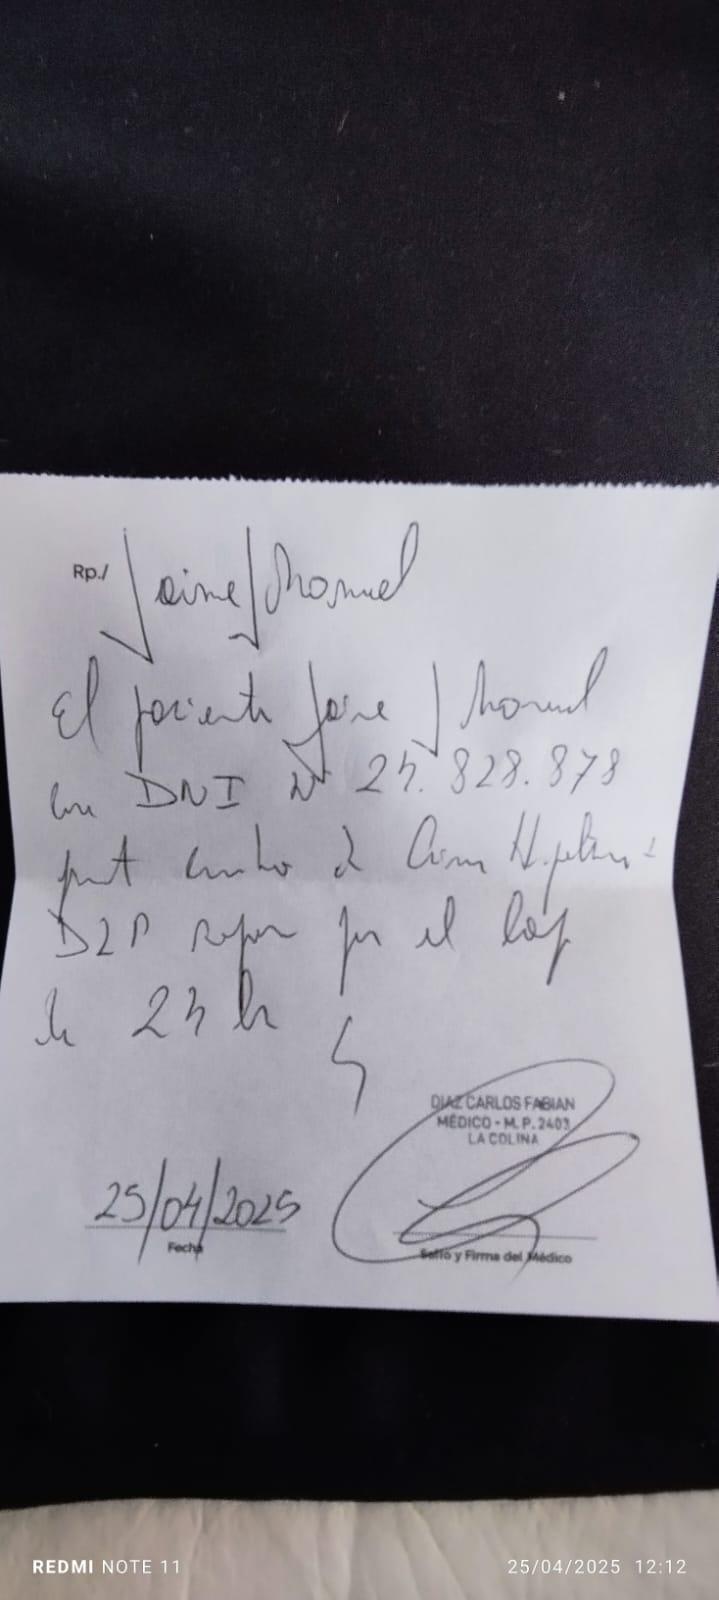 Rp./ Jaime J Manuel
El paciente Jaime J Manuel
con DNI N° 24.828.878
de
D2P por el
de 24 h
DIAZ CARLOS FABIAN
MÉDICO - M.P. 2403
LA COLINA
25/04/2025
Fecha
Sello y Firma del Médico
REDMI NOTE 11
25/04/2025 12:12